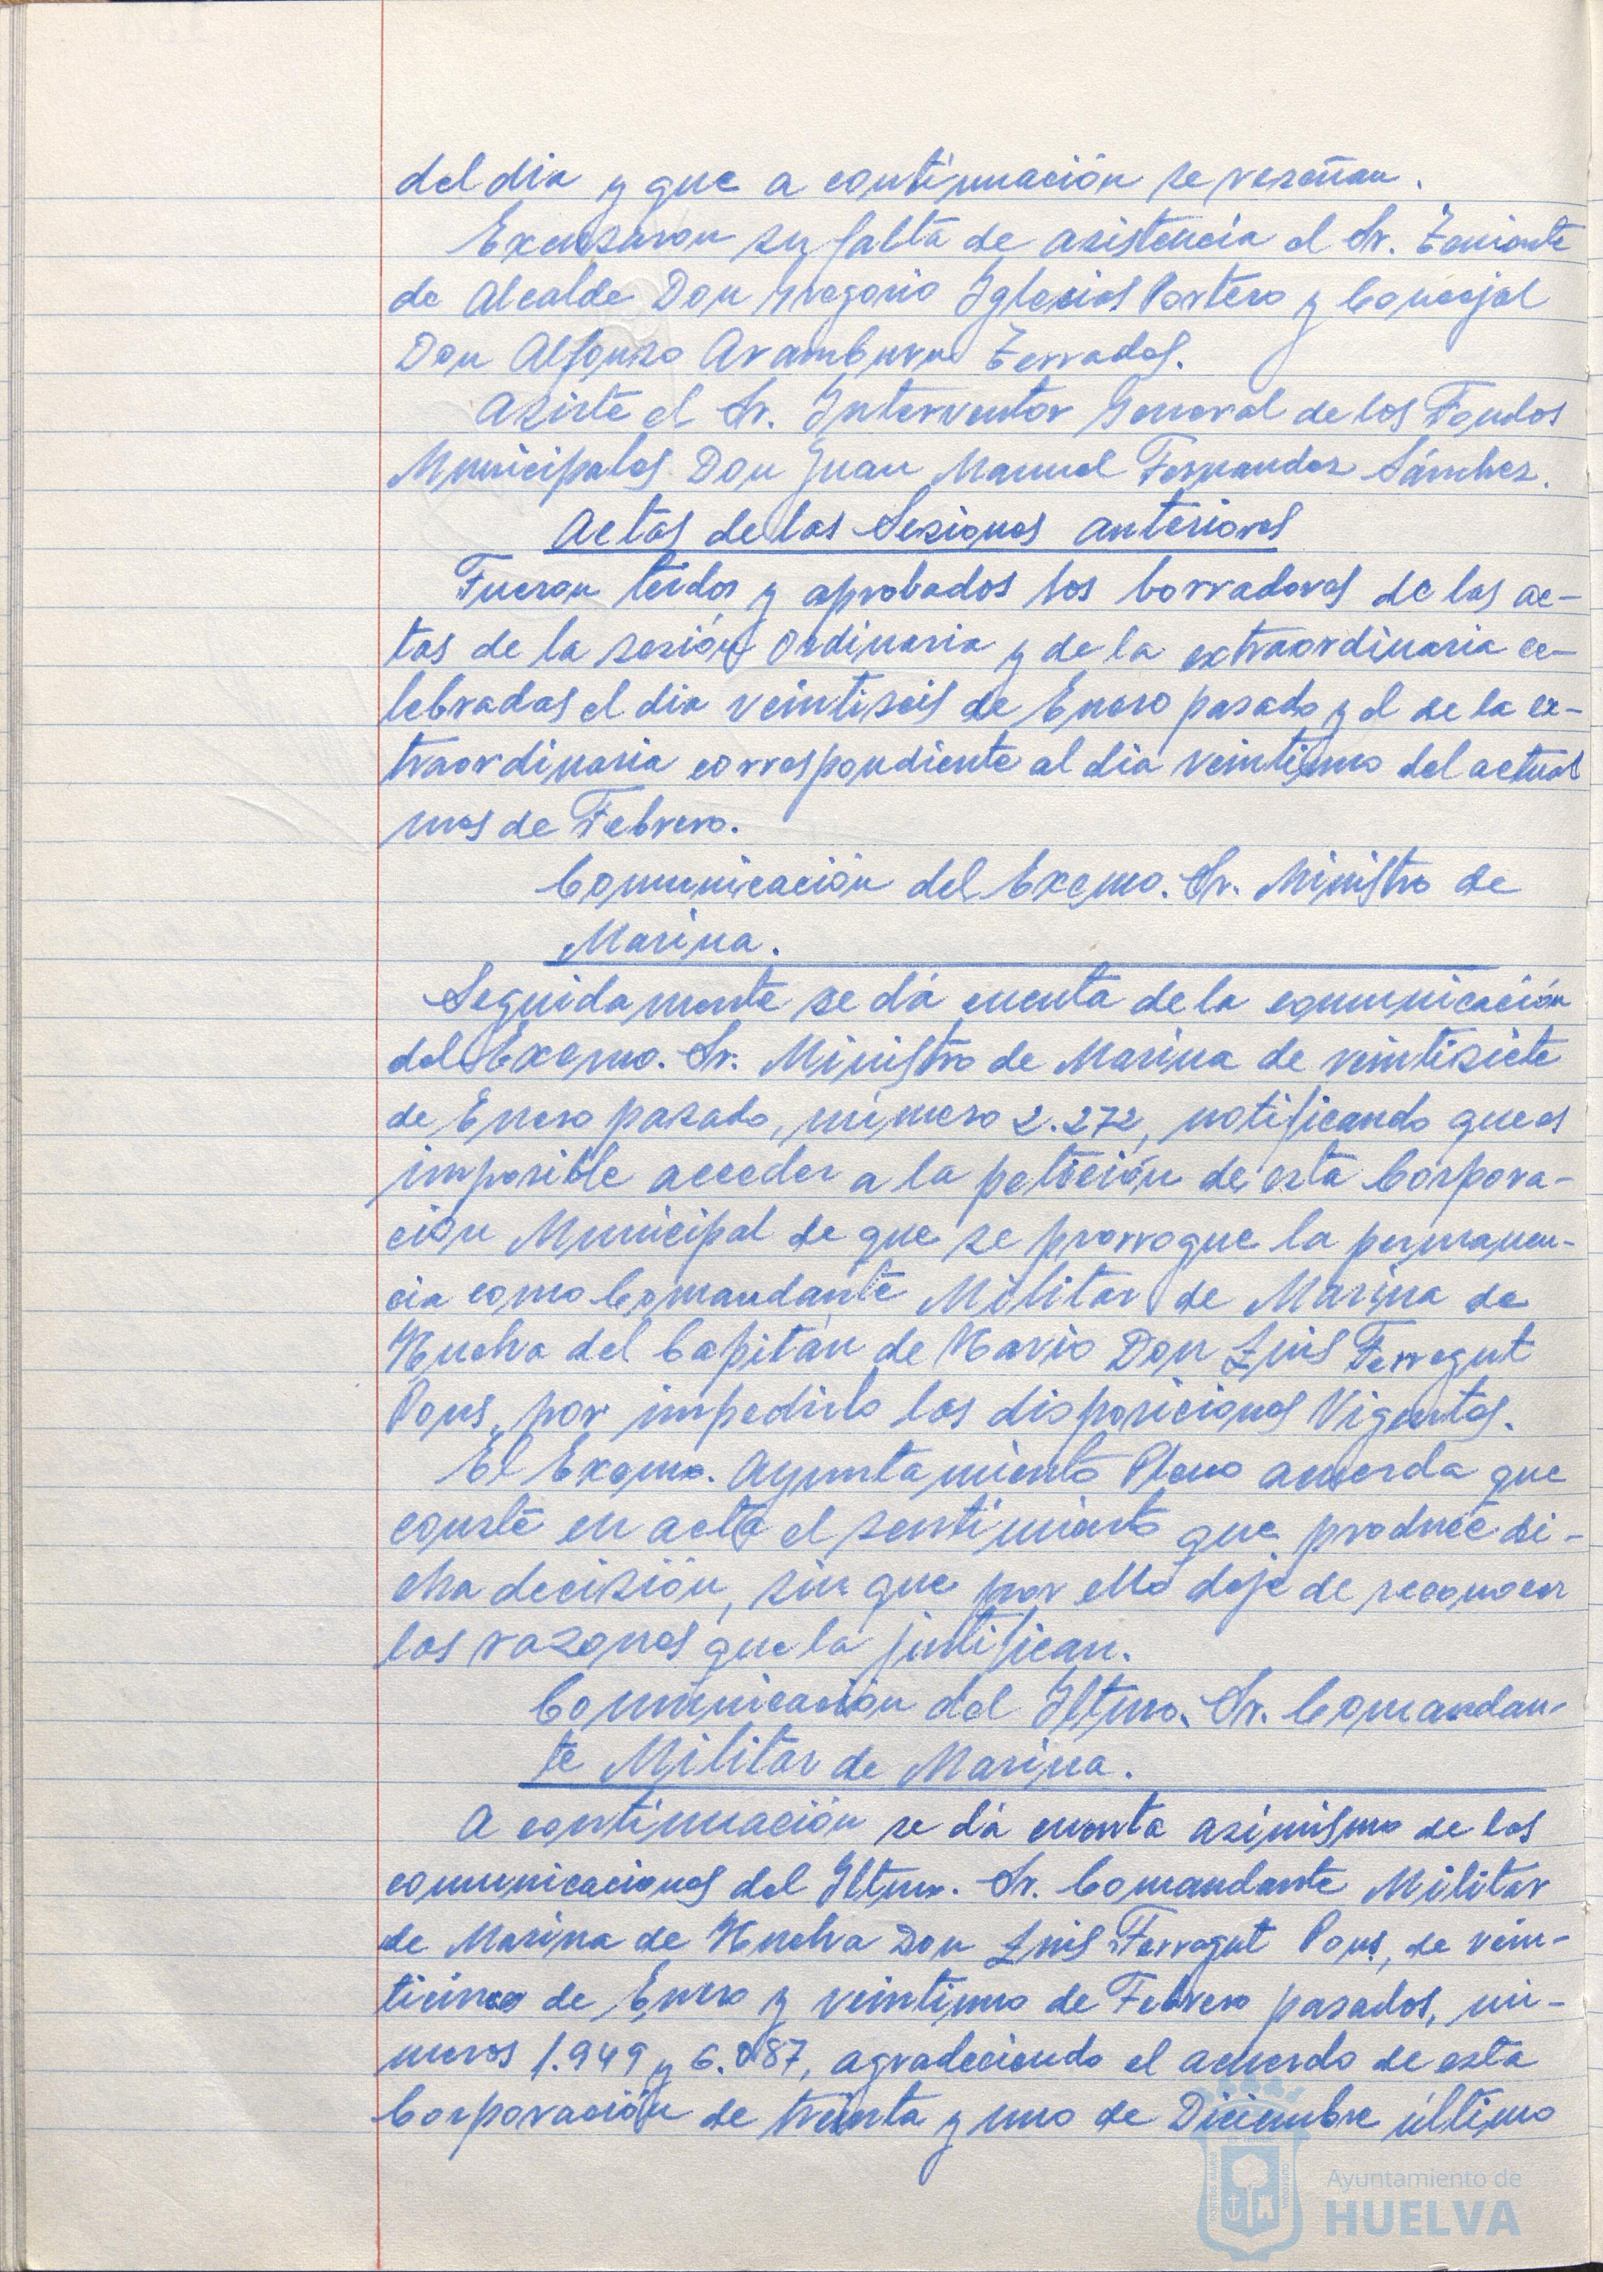 del dia y que a continuación se reseñan.
Excusaron su falta de asistencia el Sr. Teniente
de Alcalde Don Gregorio Iglesias Portero y Concejal
Don Alfonso Aramburu Terrades.
Asiste el Sr. Interventor General de los Fondos
Municipales Don Juan Manuel Fernandez Sánchez.
Actas de las Sesiones anteriores
Fueron leidos y aprobados los borradores de las ac-
tas de la sesión Ordinaria y de la extraordinaria ce-
lebradas el dia veintiseis de Enero pasado y el de la ex-
traordinaria correspondiente al dia veintiuno del actual
mes de Febrero.
Comunicación del Excmo. Sr. Ministro de
Marina.
Seguidamente se dá cuenta de la comunicación
del Excmo. Sr. Ministro de Marina de veintisiete
de Enero pasado, número 2.272, notificando que es
imposible acceder a la petición de esta Corpora-
ción Municipal de que se prorrogue la permanen-
cia como Comandante Militar de Marina de
Huelva del Capitán de Navio Don Luis Ferragut
Pons, por impedirlo las disposiciones Vigentes.
El Excmo. Ayuntamiento Pleno acuerda que
conste en acta el sentimiento que produce di-
cha decisión, sin que por ello deje de reconocer
las razones que la justifican.
Comunicación del Iltmo. Sr. Comandan-
te Militar de Marina.
A continuación se dá cuenta asimismo de las
comunicaciones del Iltmo. Sr. Comandante Militar
de Marina de Huelva Don Luis Ferragut Pons, de vein-
ticinco de Enero y veintiuno de Febrero pasados, nú-
meros 1.949 y 6.087, agradeciendo el acuerdo de esta
Corporación de treinta y uno de Diciembre último
Ayuntamiento de
HUELVA